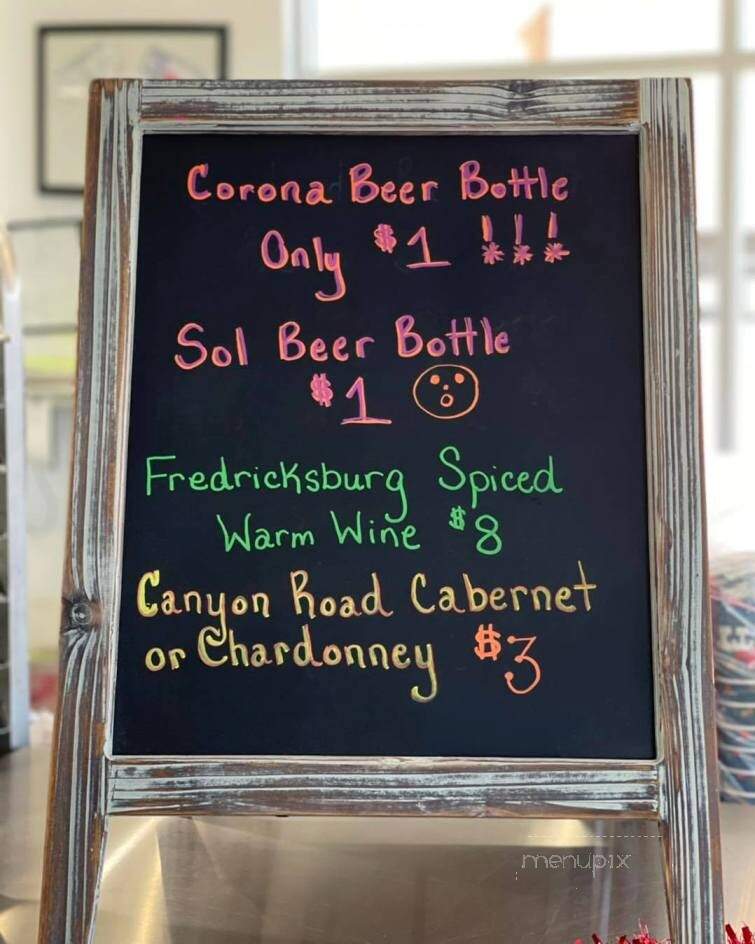 Corona Beer Bottle
Only $1 !!!
Sol Beer Bottle
$1
Fredricksburg Spiced
Warm Wine $8
Canyon Road Cabernet
or Chardonney $3
menupix